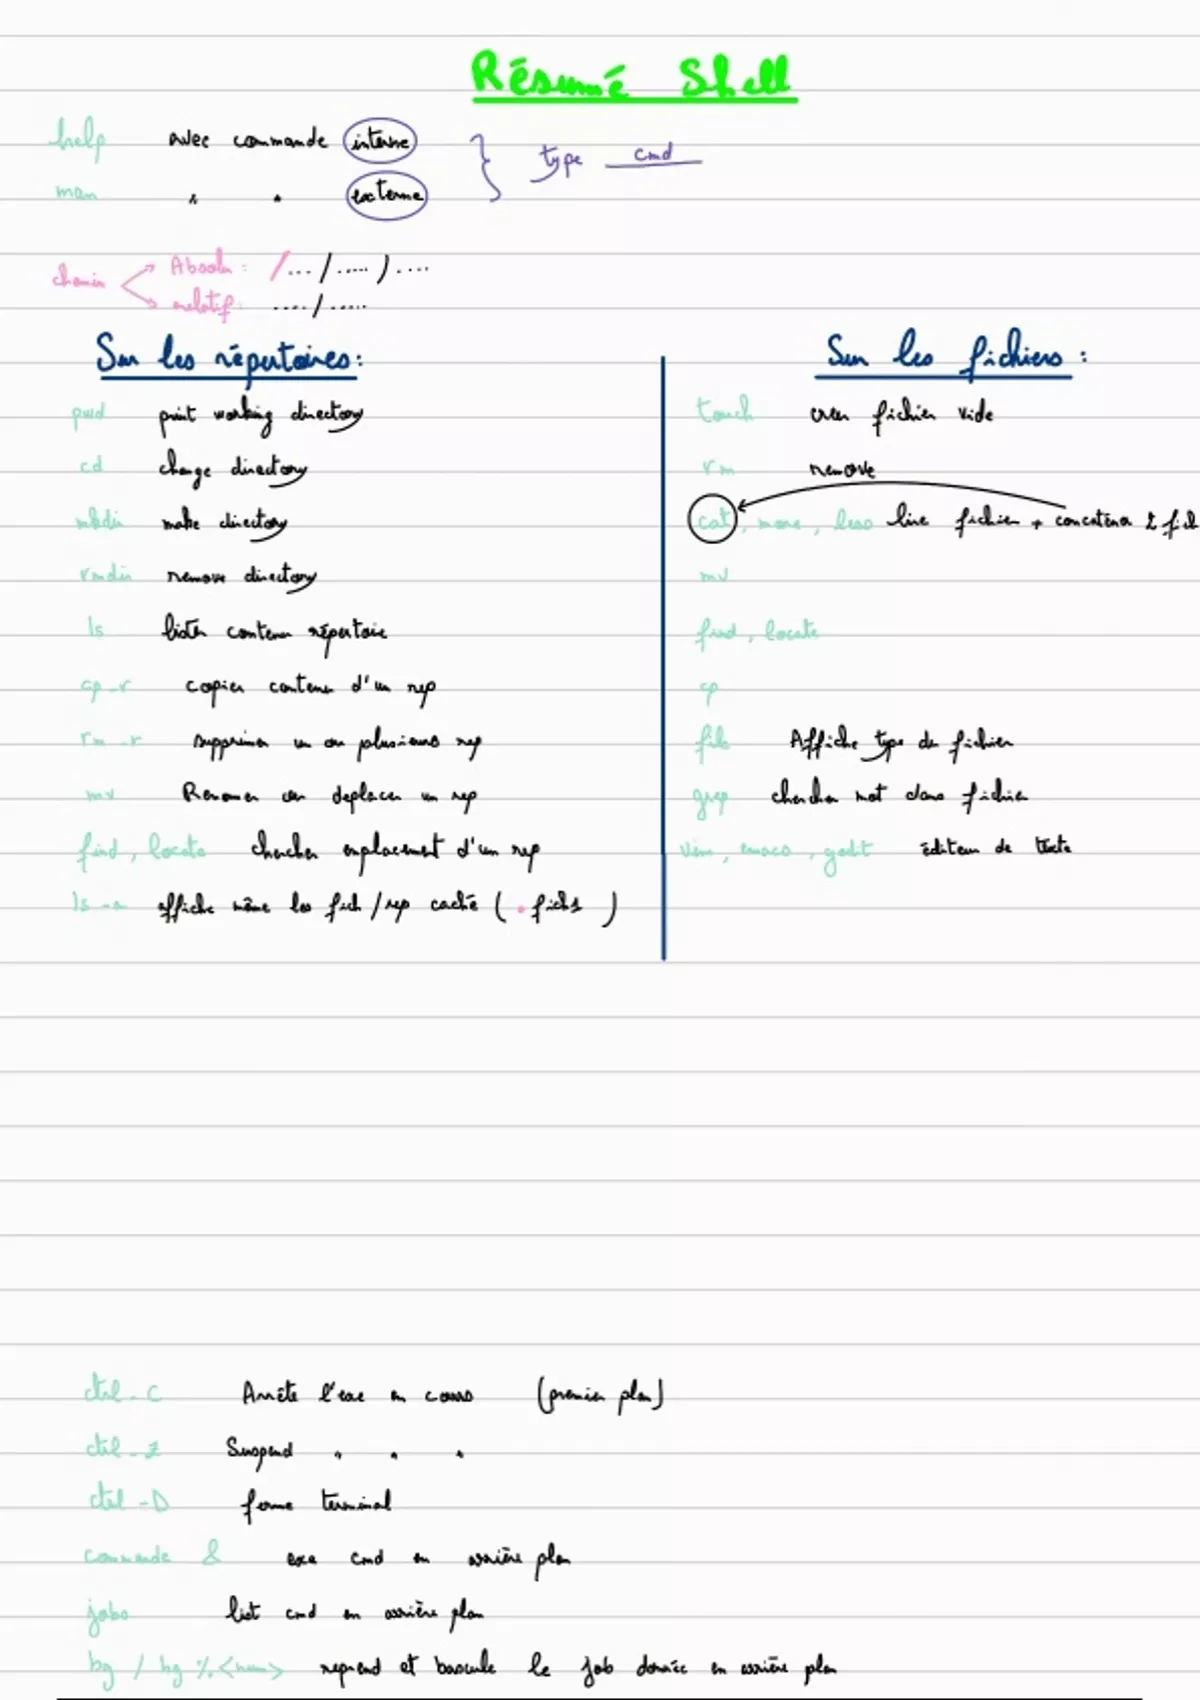 Résumé Shell
help avec commande interne
man " " externe
type cmd
chemin
Absolu : /... / ..... / ....
relatif : .... / .....
Sur les répertoires :
pwd print working directory
cd change directory
mkdir make directory
rmdir remove directory
ls lister contenu répertoire
cp -r copier contenu d'un rep
rm -r supprimer un ou plusieurs rep
mv Renomer ou deplacer un rep
find, locate chercher emplacement d'un rep
ls -a affiche même les fich / rep caché ( . fich1 )
Sur les fichiers :
touch creer fichier vide
rm remove
cat, more, less lire fichier + concaténer 2 fich
mv
find, locate
cp
file Affiche type de fichier
grep chercher mot dans fichier
vim, emacs, gedit éditeur de texte
ctrl - C Arrête l'exe en cours (premier plan)
ctrl - Z Suspend " " "
ctrl - D ferme terminal
commande & exe cmd en arrière plan
jobs list cmd en arrière plan
bg / bg %<num> reprend et bascule le job donnée en arrière plan